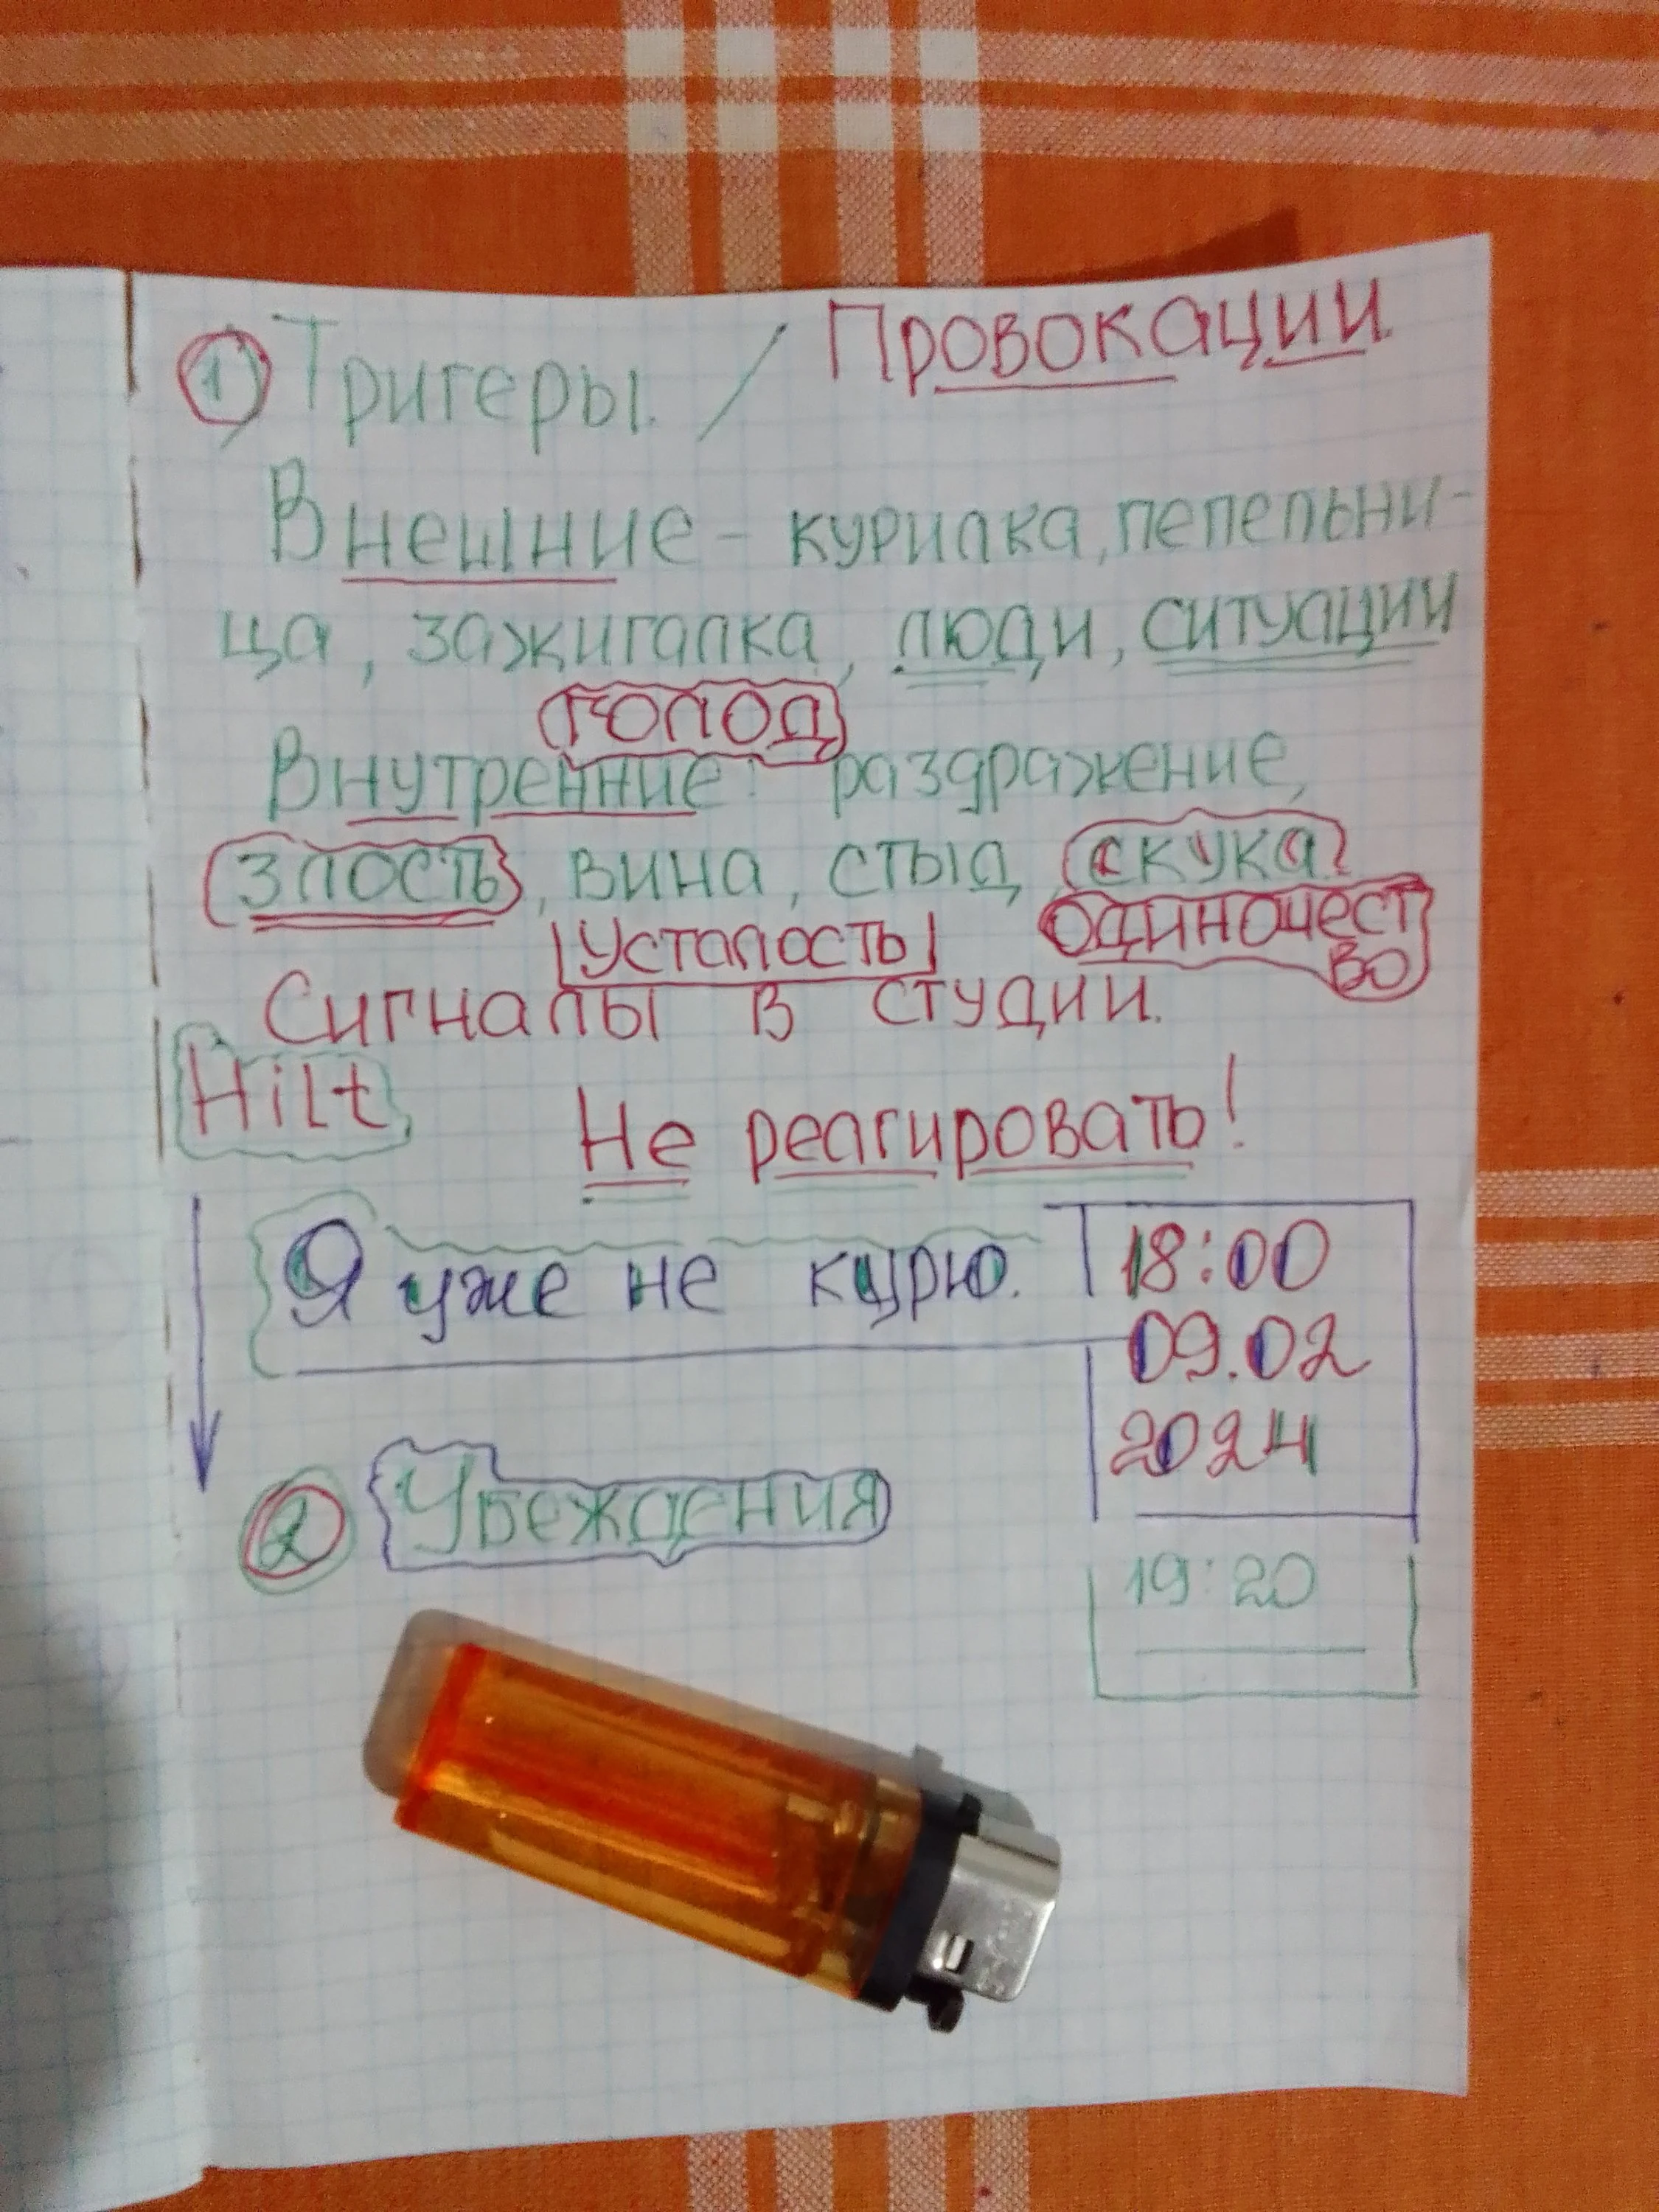 1) Тригеры. / Провокации.
Внешние - курилка, пепельни-
ца, зажигалка, люди, ситуации
голод
Внутренние: раздражение,
злость, вина, стыд, скука
Усталость одиночест
во
Сигналы в студии.
Hilt,
Не реагировать!
Я уже не курю. 18:00
09.02
2024
2 Убеждения
19:20